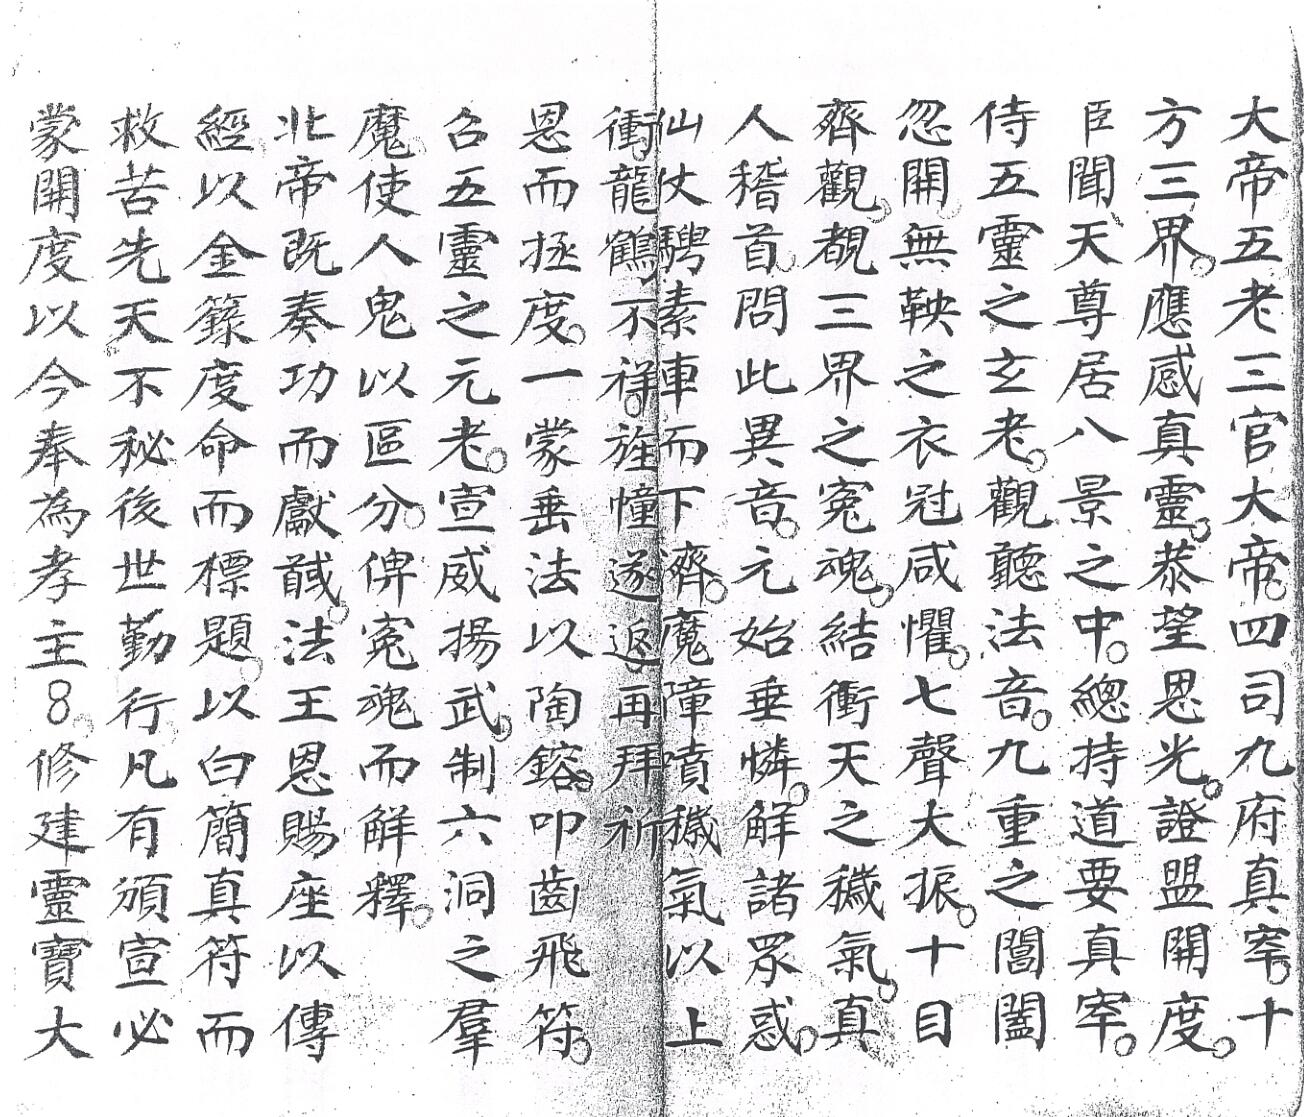 大帝五老三官大帝。四司九府真宰。十
方三界。應感真靈。恭望恩光。證盟開度。
臣聞天尊居八景之中。總持道要真宰。
侍五靈之玄老。觀聽法音。九重之閶闔
忽開無鞅之衣冠咸懼。七聲大振。十目
齊觀。覩三界之寃魂。結衝天之穢氣。真
人稽首。問此異音。元始垂憐。解諸眾惑。
仙仗騁素車而下齊。魔障噴穢氣以上
衝。龍鶴不祥。旌幢遂返。再拜祈
恩而拯度。一蒙垂法以陶鎔。叩齒飛符。
召五靈之元老。宣威揚武。制六洞之羣
魔。使人鬼以區分。俾寃魂而解釋。
北帝既奏功而獻馘。法王恩賜座以傳
經以金籙度命而標題。以白簡真符而
救苦先天不秘後世勤行凡有頒宣必
蒙開度以今奉為孝主8。修建靈寶大